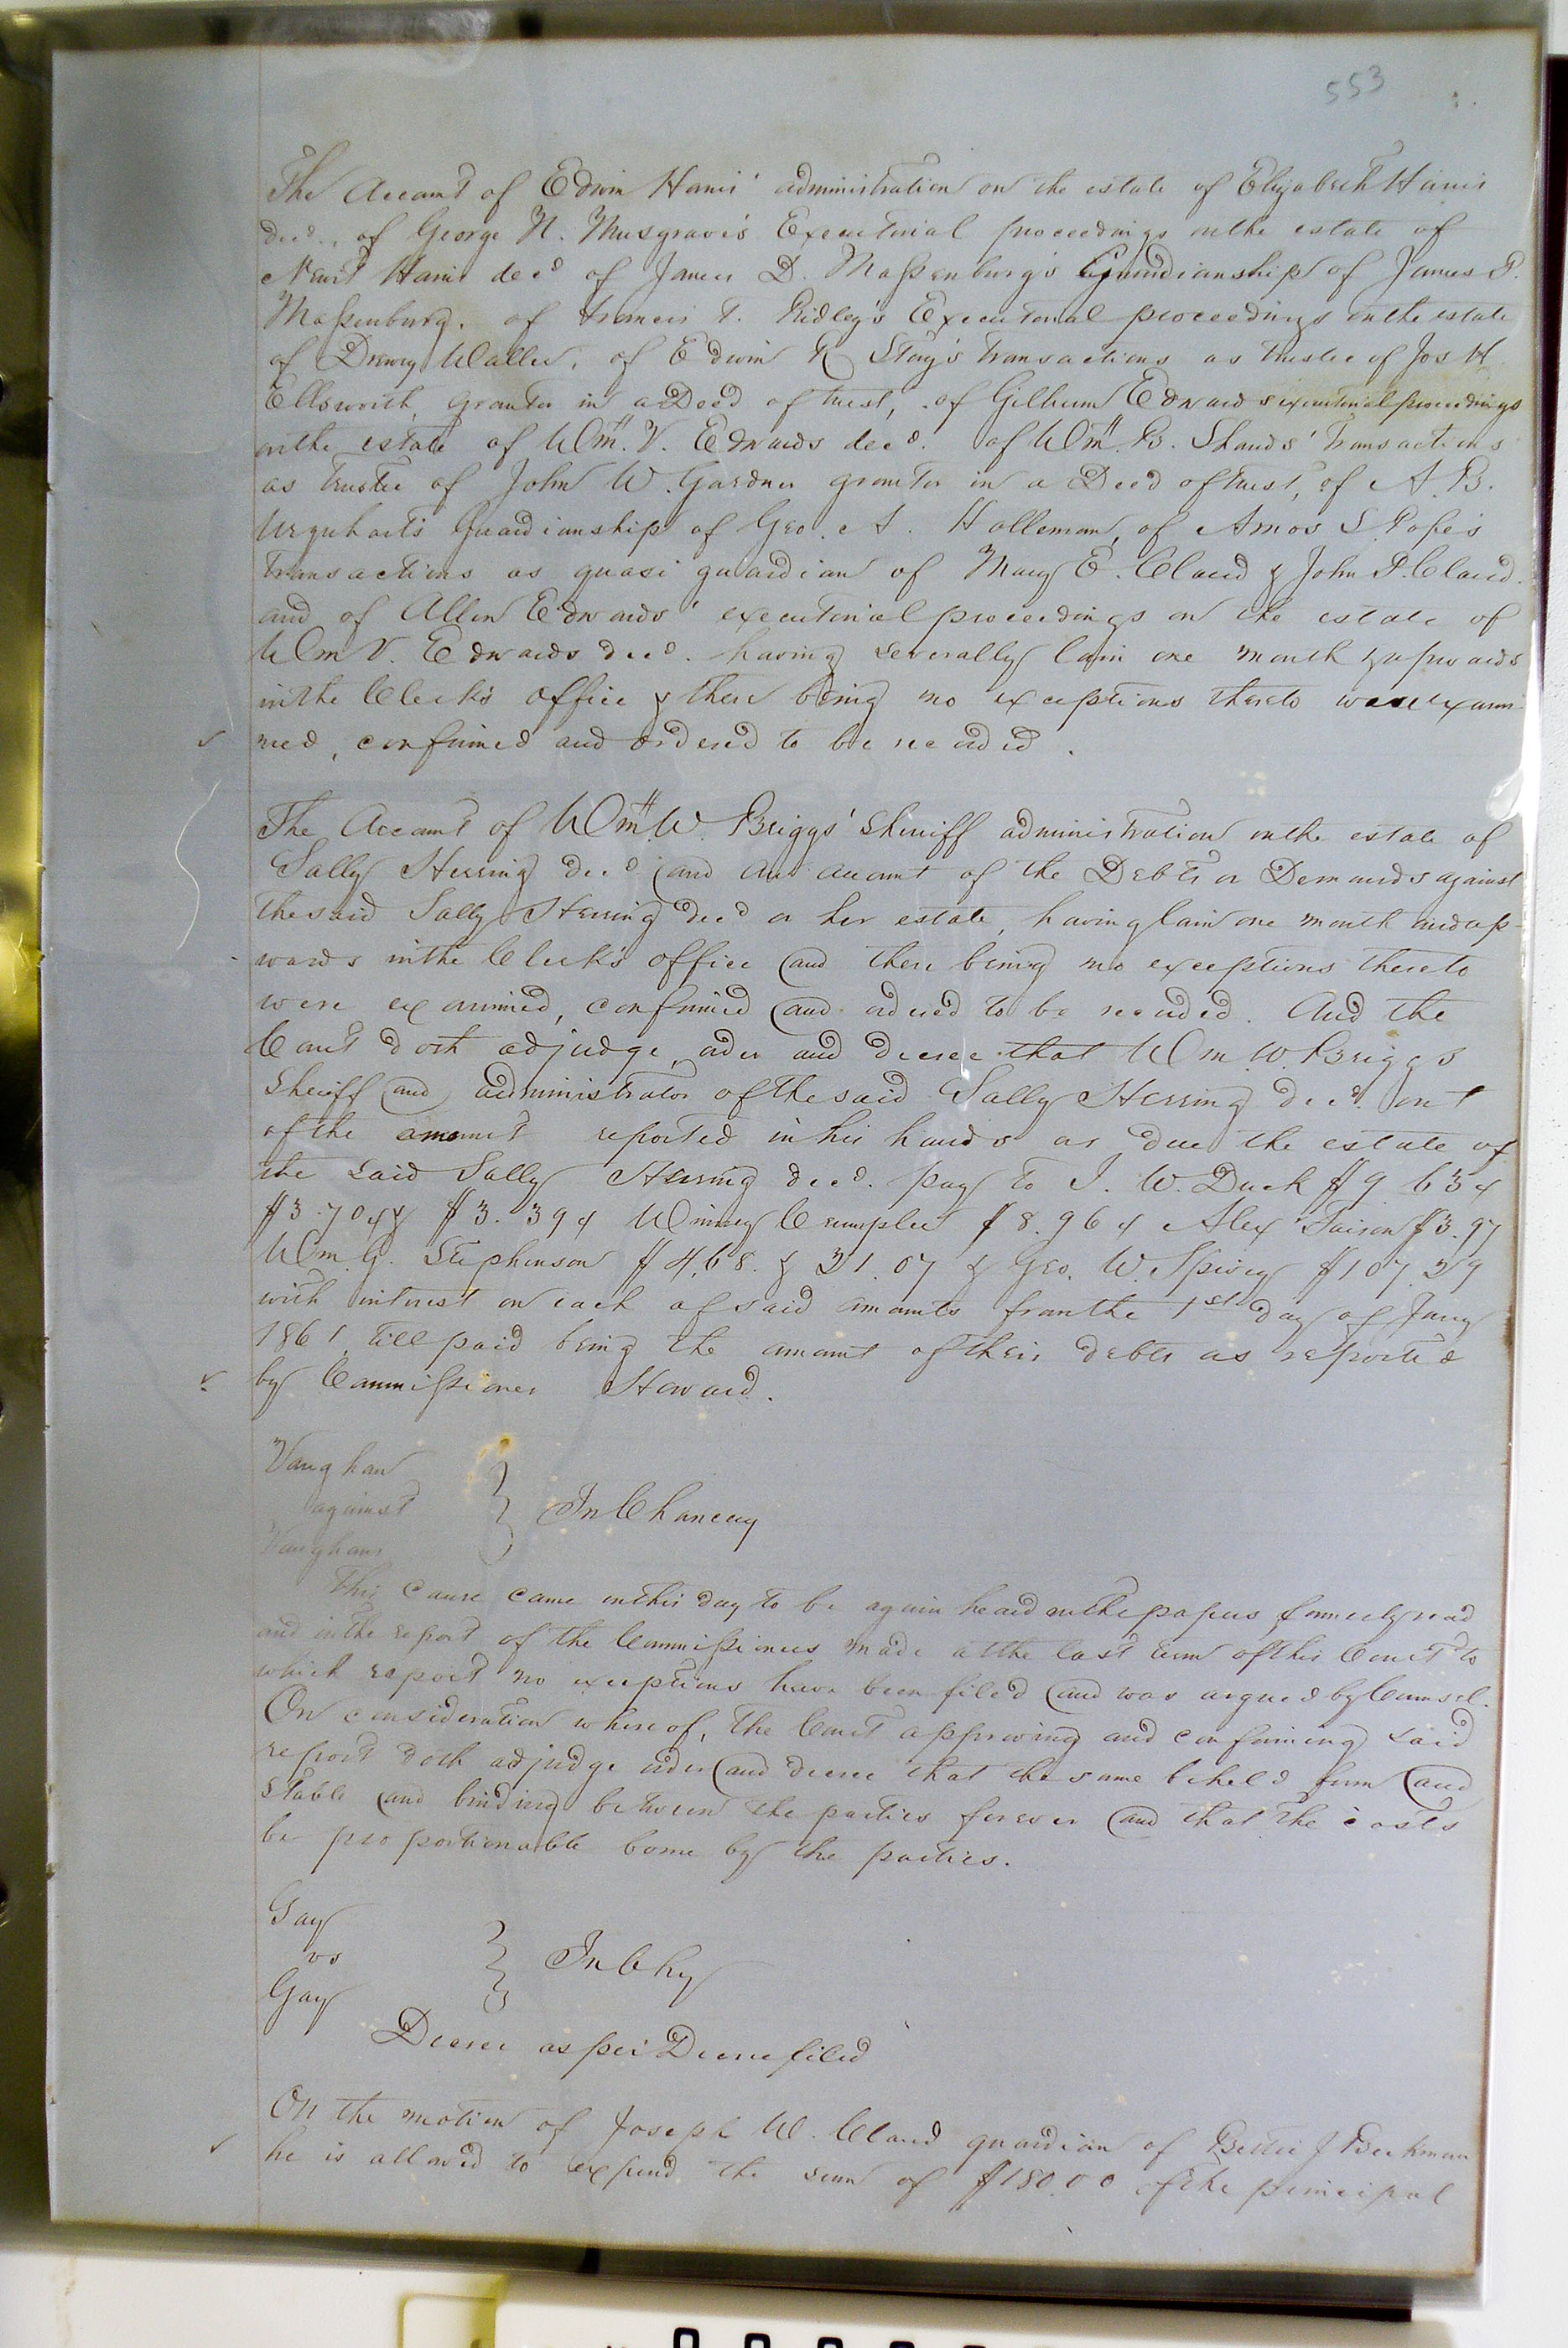 553
The Account of Edwin Harris' administration on the estate of Elizabeth Harris
decd., of George N. Musgrave's Executorial proceedings on the estate of
Newit Harris decd of James D. Massenburg's Guardianship of James P.
Massenburg, of Francis T. Ridley's Executorial proceedings on the estate
of Drewry Waller, of Edwin R Story's transactions as trustee of Jos H
Ellsworth, grantor in a Deed of trust, of Gilliam Edwards executorial proceedings
on the estate of Wm. V. Edwards decd. of Wm. B. Shands' transactions
as trustee of John W. Gardner grantor in a Deed of trust, of A. B.
Urquhart's guardianship of Geo. A. Holleman, of Amos S. Pope's
transactions as quasi guardian of Mary E. Claud & John P. Claud.
and of Allen Edwards' executorial proceedings on the estate of
Wm V. Edwards decd. having severally lain one month & upwards
in the Clerk's office & there being no exceptions thereto were exami
ned, confirmed and ordered to be recorded.
The Account of Wm. W. Briggs' Sheriff administration on the estate of
Sally Herring decd and an account of the Debts or Demands against
the said Sally Herring decd or her estate, having lain one month and up-
wards in the Clerk's office and there being no exceptions thereto
were examined, confirmed and ordered to be recorded. And the
Court doth adjudge, order and decree that Wm. W. Briggs
Sheriff and administrator of the said Sally Herring decd. out
of the amount reported in his hands as due the estate of
the said Sally Herring decd. pay to J. W. Duck $9.63 &
$3.70 & $3.39 & Winney Crumpler $8.96 & Alex Faison $3.97
Wm. G. Stephenson $4.68. & 21.07 & Geo. W. Spivey $107.29
with interest on each of said amounts from the 1st day of Jany
1861, till paid being the amount of their debts as reported
by Commissioner Howard.
Vaughan
against
Vaughans
In Chancery
This cause came on this day to be again heard on the papers formerly read
and on the report of the Commissioners made at the last term of this Court to
which report no exceptions have been filed and was argued by Counsel.
On consideration whereof, the Court approving and confirming said
report doth adjudge order and decree that the same be held firm and
stable and binding between the parties forever and that the costs
be proportionable borne by the parties.
Gay
vs
Gay
In Chy
Decree as per Decree filed
On the motion of Joseph W. Claud guardian of Bettie J Beckman
he is allowed to expend the sum of $180.00 of the principal